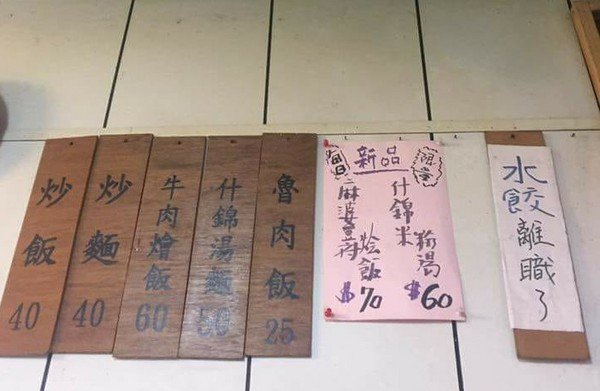 炒飯
40
炒麵
40
牛肉燴飯
60
什錦湯麵
50
魯肉飯
25
每日
新品
限量
什錦米粉湯
$60
麻婆
烩飯
$70
水餃離職了